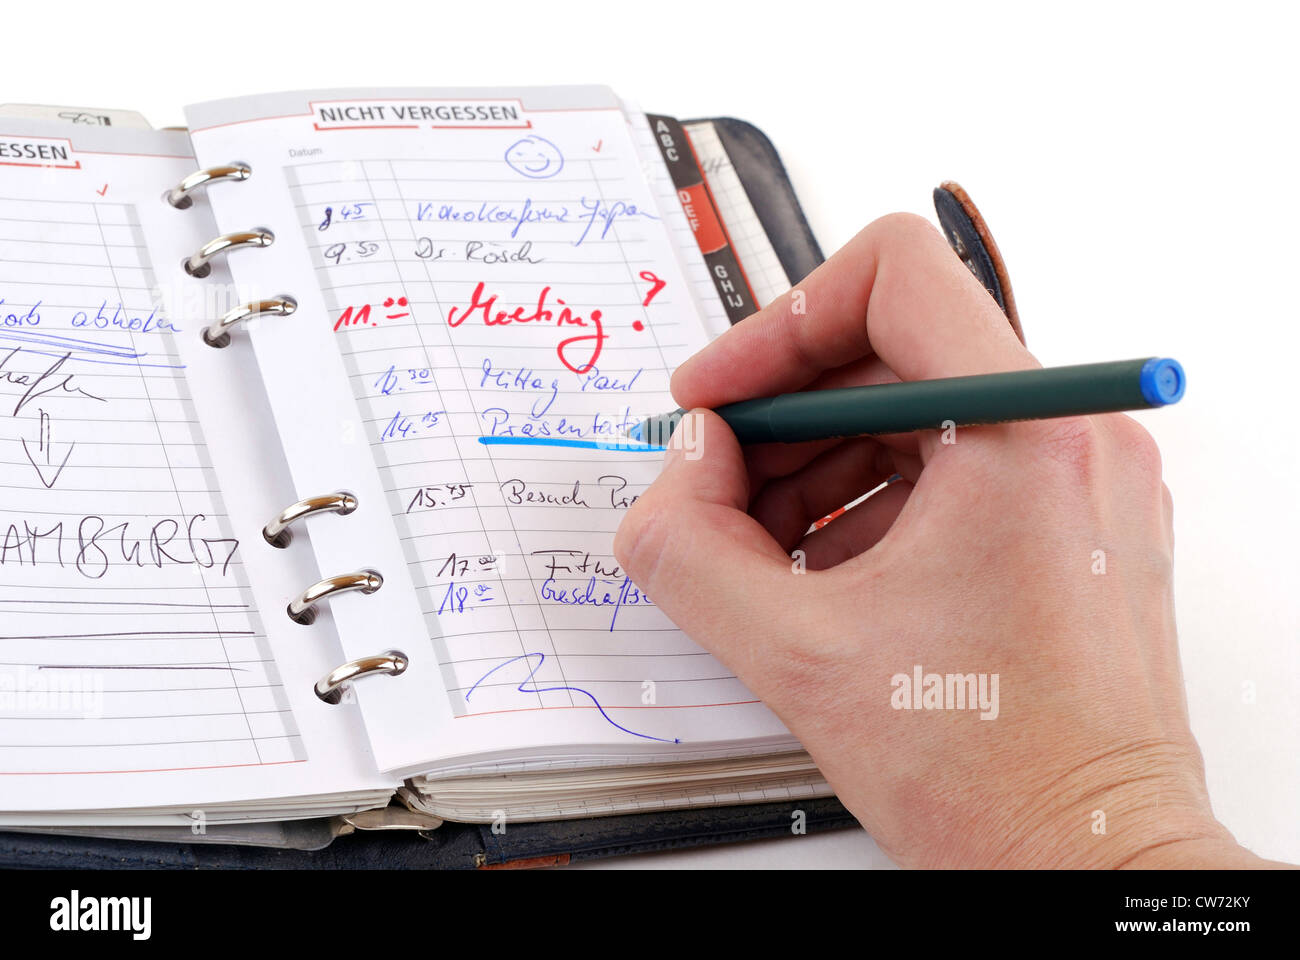 ESSEN
abholen
AMBURG
NICHT VERGESSEN
Datum
8.45 Videokonferenz Japan
9.50 Dr. Rösch
11.00 Meeting?
12.30 Mittag Paul
14.15 Präsentat
15.45 Besuch Pr
17.00 Fitne
18.00 Geschäfts
ABC
DEF
GHIJ
alamy
alamy
Image ID: CW72KY
www.alamy.com